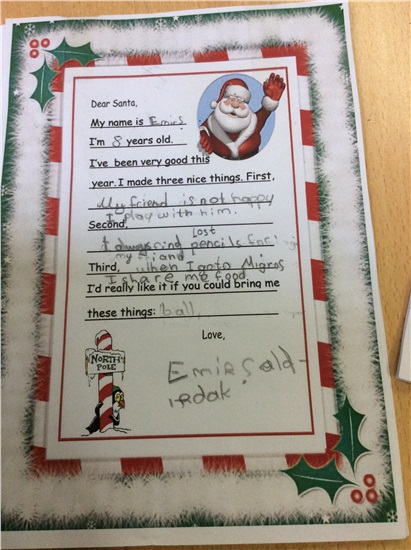 Dear Santa,
My name is Emirs
I'm 8 years old.
I've been very good this
year. I made three nice things. First,
My friend is not happy
I play with him.
Second,
Lost
I always find pencils for
my friand
Third, when I go to Migros
I share me food.
I'd really like it if you could bring me
these things: ball
Love,
NORTH
POLE